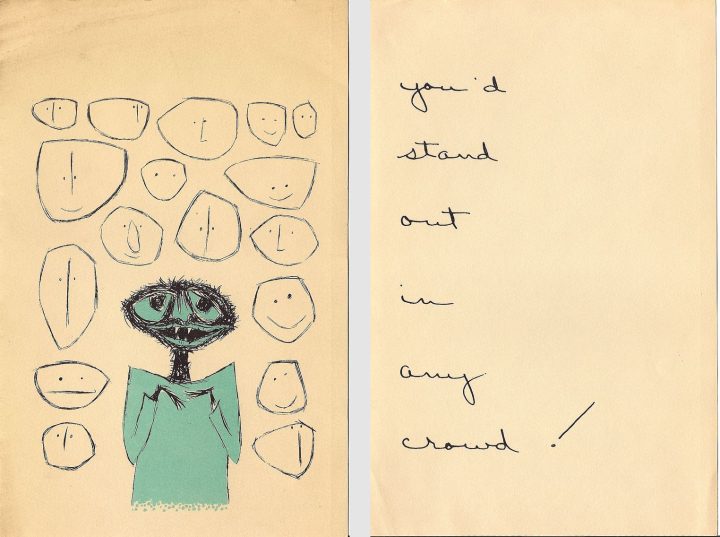 you'd
stand
out
in
any
crowd!